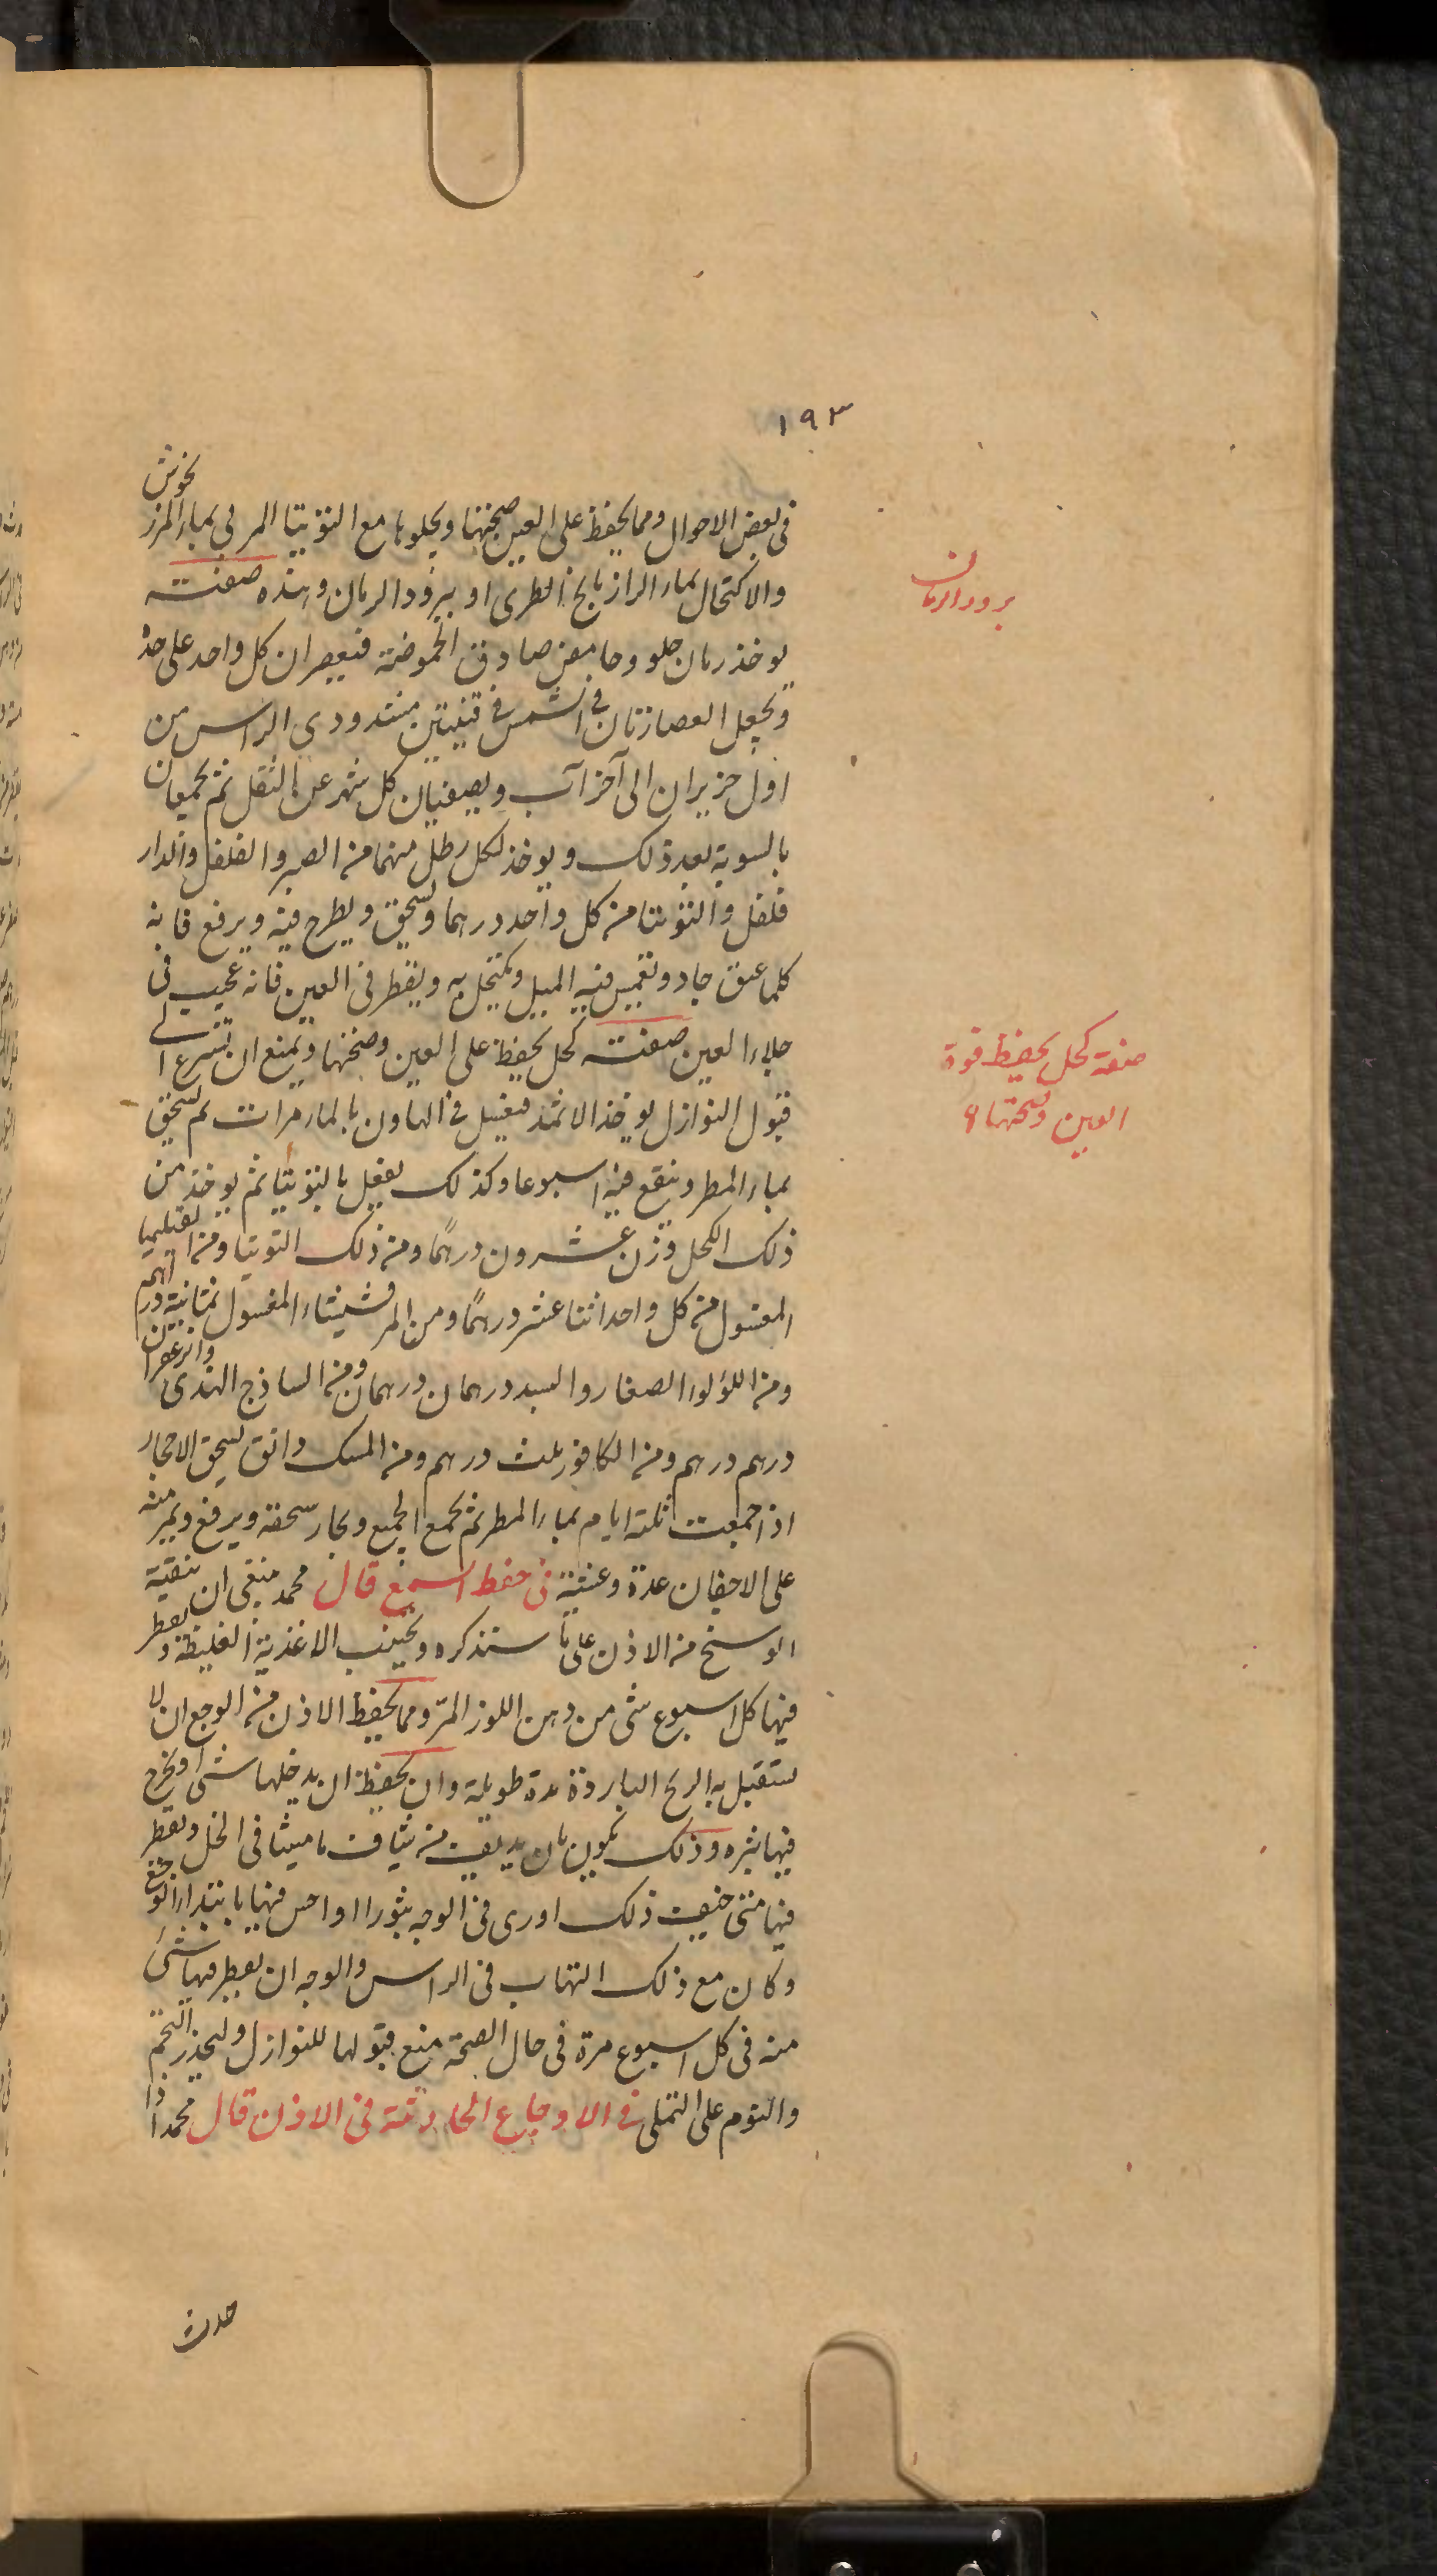 ١٩٣
فى بعض الاحوال ومما يحفظ على العين صحتها ويجلوها مع التوتيا المربى بماء المرزنجوش
والاكتحال بماء الرازيانج الطرى او ببرود الرمان وهذه صفته
برود الرمان
يوخذ رمان حلو وحامض صادق الحموضة فيعصران كل واحد على حدة
وتجعل العصارتان فى الشمس فى قنينتين مشدودى الراس من
اول حزيران الى آخر آب ويصفيان كل شهر عن الثقل ثم يجمعان
بالسوية بعد ذلك ويوخذ لكل رطل منهما من الصبر والفلفل والدار
فلفل والتوتيا من كل واحد درهما ويسحق ويطرح فيه ويرفع فانه
كلما عتق جاد ويغمس فيه الميل ويكتحل به ويقطر فى العين فانه عجيب فى
جلاء العين صفته كحل يحفظ على العين وصحتها ويمنع ان تسرع الے
صفة كحل يحفظ قوة
العين وصحتها
قبول النوازل يوخذ الاثمد فيغسل فى الهاون بالماء مرات ثم يسحق
بماء المطر وينقع فيه اسبوعا وكذلك يفعل بالتوتيا ثم يوخذ من
ذلك الكحل وزن عشرون درهمًا ومن ذلك التوتيا ومن اقليميا
المغسول من كل واحد اثنا عشر درهمًا ومن المرقشيشاء المغسول ثمانية دراهم
ومن اللؤلؤ الصغار والبسد درهمان درهمان ومن الساذج الهندى والزعفران
درهم درهم ومن الكافور ثلث درهم ومن المسك دانق يسحق الاحجار
اذا جمعت ثلثة ايام بماء المطر ثم يجمع الجميع ويجاد سحقه ويرفع ويمر منه
على الاجفان غدوة وعشية فى حفظ السمع قال محمد ينبغى ان تنقية
الوسخ من الاذن على ما سنذكره ويجتنب الاغذية الغليظة ويقطر
فيها كل اسبوع شى من دهن اللوز المرّ ومما يحفظ الاذن من الوجع ان لا
يستقبل به الريح الباردة مدة طويلة وان يحفظ ان يدخلها شى او يخرج
فيها بثره وذلك يكون بان يديف من شياف ماميثا فى الخل ويقطر
فيها متى خيف ذلك اورى فى الوجه بثورا او احس فيها بابتداء الوجع
وكان مع ذلك التهاب فى الراس والوجه ان يقطر فيها شئ
منه فى كل اسبوع مرة فى حال الصحة منع قبولها للنوازل وليحذر التخم
والنوم على التملى فى الاوجاع الحادثة فى الاذن قال محمد اذا
حدث